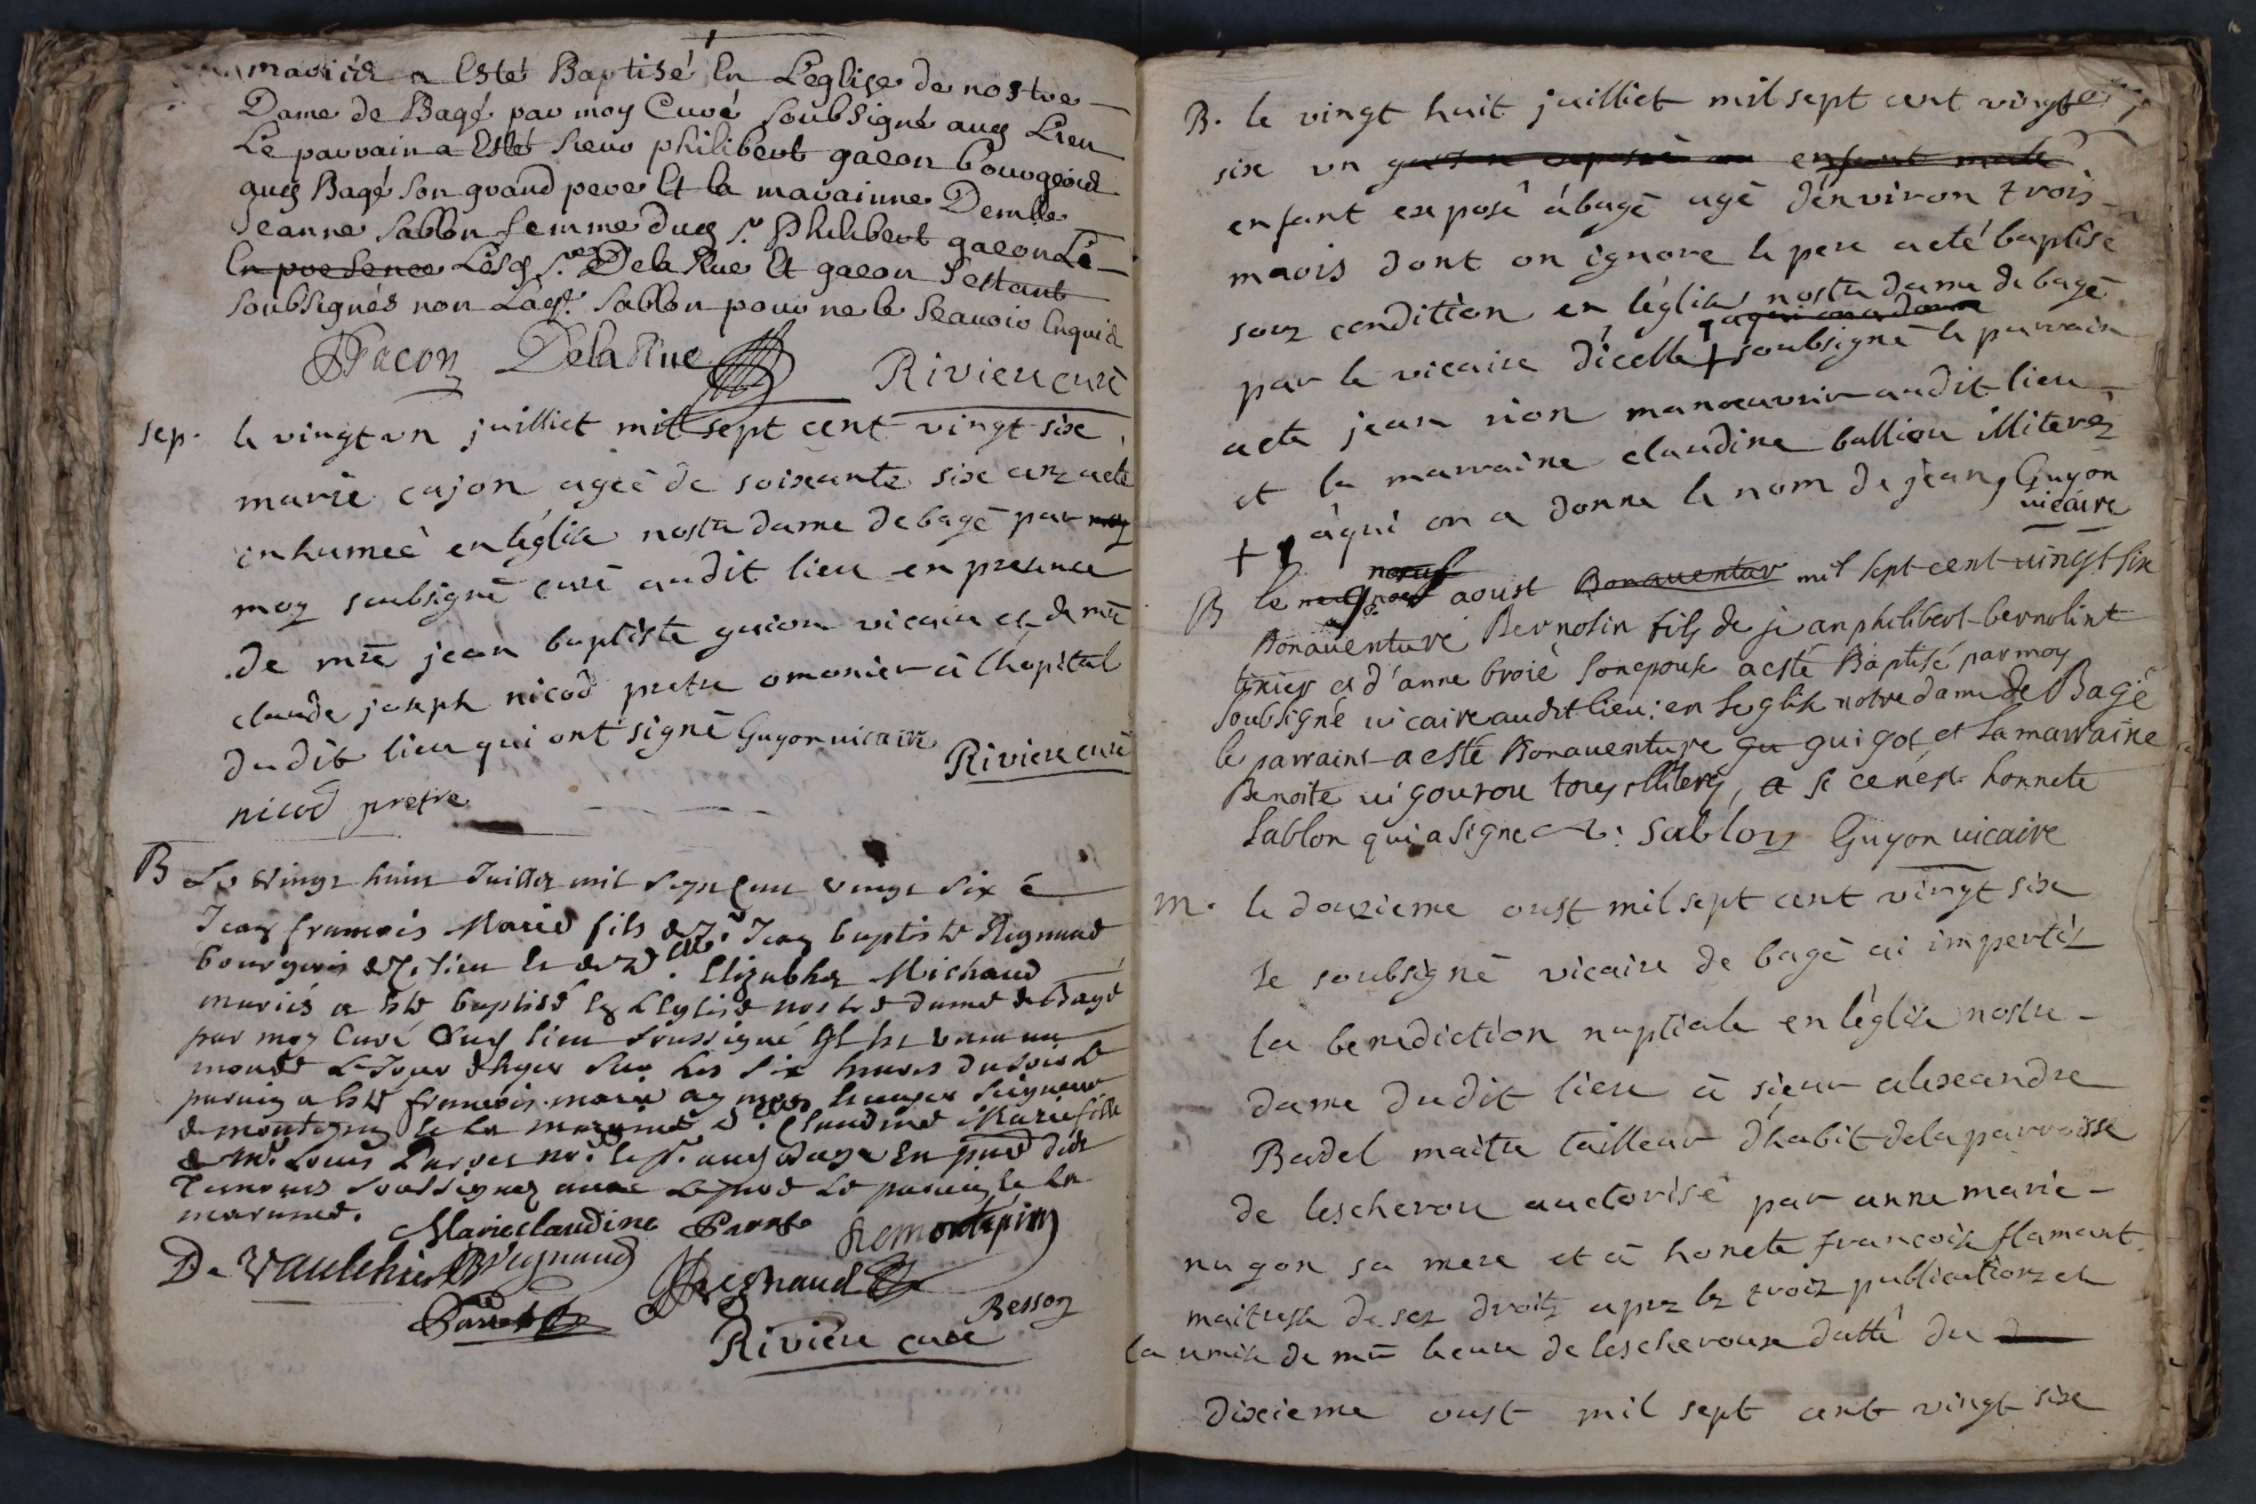 mariés a Esté Baptisé En L'eglise de nostre
Dame de Bagé par moy Curé soubsigné aud Lieu
Le parrain a Esté sieur philibert gacon bourgeois
aud Bagé son grand pere Et la maraine Demlle
Jeanne sablon femme dud Sr philibert gacon Le
En presence Lesd Srs De la Rue Et gacon sestant
soubsignés non Lad sablon pour ne le scavoir Enquis
Facon DelaRue Riviere curé
sep. le vingt un juilliet mil sept cent vingt six
marie cajon ageé de soixante six anz a eté
inhumeé en léglise nostre dame de bagé par moy
moy soubsigné curé audit lieu en presence
de mre jean baptiste guion vicaire et de mre
claude joseph nicod pretre omonier á lhopital
du dit lieu qui ont signé Guyon vicaire
Riviere curé
nicod pretre
B Le vingt huit Juillet mil sept Cent vingt six
Jean francois Marie fils de Sr Jean baptiste Regnaud
bourgeois lieu et de Dlle Elizabhet Michaud
mariés a esté baptisé En LEglise nostre dame de Bagé
par moy Curé aud lieu soussigné Et est venu au
monde Le Jour d'hyer sur les six heures du soir Le
parain a esté francois marie seigneur
de montepin et la maraine d. Claudine Marie fille
de Mr. Louis Parret aud Bagé En
soussignez avec Le parain et la
maraine.
Marie claudine Parret De montepin
De Vaulchier Regnaud Regnaud
Parret Besson
Riviere curé
B. le vingt huit juilliet mil sept cent vingt
six un enfant male
enfant exposé ábagé agé dénviron trois
mois dont on ignore le pere a eté baptisé
souz condition en léglise nostre dame de bagé
a qui on a donne
par le vicaire dícelle + soubsigné le parrain
a ete jean rion manoeuvrier audit lieu
et la marraine claudine ballion illiterez
+ áqui on a donne le nom de jean, Guyon
vicaire
noeuf
B le aoust Bonaventur mil sept cent vingt six
Bonaventure Bernolin fils de jean philibert bernolin t
tixier et d'anne broié son epouse a esté Baptisé par moy
soubsigné vicaire audit lieu: en leglise notre dame de Bagé
le parrain a esté Bonaventure gu guigot et la marraine
Benoite vigourou tous illiterés, et si ce nést honnete
sablon qui a signé : Sablon Guyon vicaire
m. le douzieme oust mil sept cent vingt six
Je soubsigné vicaire de bagé ai imperti
la benediction nuptiale en léglise nostre
dame dudit lieu á sieur alexandre
Badel maitre tailleur d'habit de la parroisse
de lescherou auctorisé par anne marie
nugon sa mere et á honete francoise flamant
maitresse de ses droitz aprez lez troiz publications et
la remise de mre le cure de lescheroux datté du
dixieme oust mil sept cent vingt six